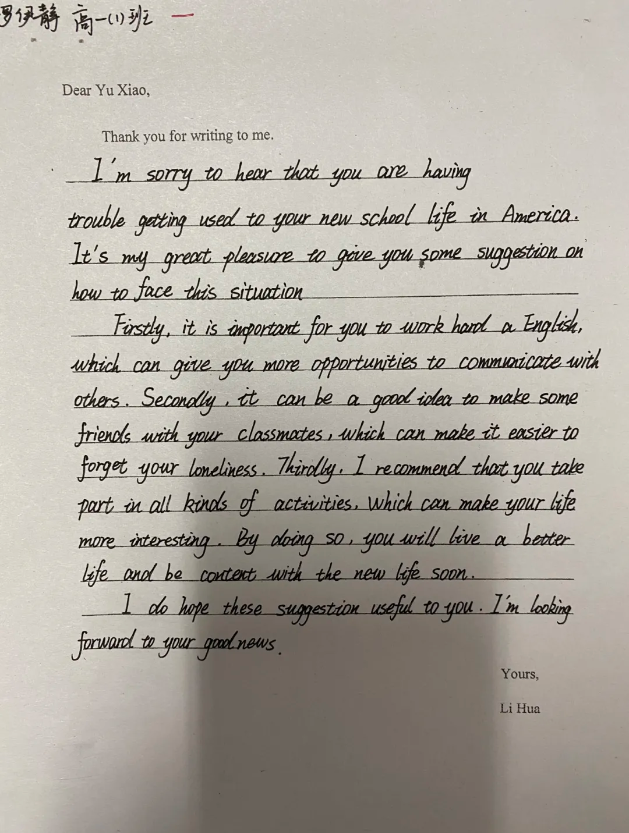 伊静 高一(1)班 一
Dear Yu Xiao,
Thank you for writing to me.
I'm sorry to hear that you are having
trouble getting used to your new school life in America.
It's my great pleasure to give you some suggestion on
how to face this situation
Firstly, it is important for you to work hard a English,
which can give you more opportunities to communicate with
others. Secondly, it can be a good idea to make some
friends with your classmates, which can make it easier to
forget your loneliness. Thirdly, I recommend that you take
part in all kinds of activities, Which can make your life
more interesting. By doing so, you will live a better
life and be content with the new life soon.
I do hope these suggestion useful to you. I'm looking
forward to your good news.
Yours,
Li Hua